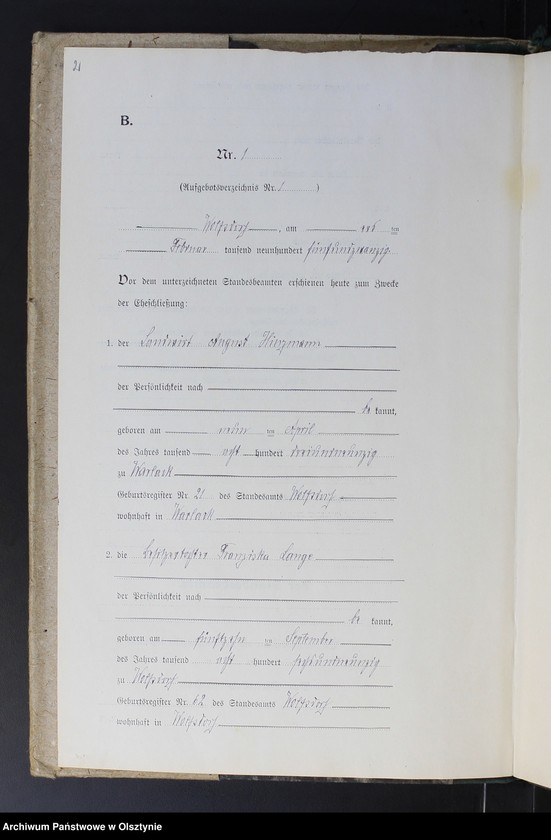 21
B.
Nr. 1
(Aufgebotsverzeichnis Nr. 1 )
Wolfsdorf, am ten
Februar tausend neunhundert fünfundzwanzig.
Vor dem unterzeichneten Standesbeamten erschienen heute zum Zwecke
der Eheschließung:
1. der Landwirt August Hinzmann
der Persönlichkeit nach
be kannt,
geboren am ten April
des Jahres tausend acht hundert dreiundneunzig
zu Warlack
Geburtsregister Nr. 21 des Standesamts Wolfsdorf
wohnhaft in Warlack
2. die Besitzertochter Franziska Lange
der Persönlichkeit nach
be kannt,
geboren am fünfzehn ten September
des Jahres tausend acht hundert sechsundneunzig
zu Wolfsdorf
Geburtsregister Nr. 62 des Standesamts Wolfsdorf
wohnhaft in Wolfsdorf
Archiwum Państwowe w Olsztynie